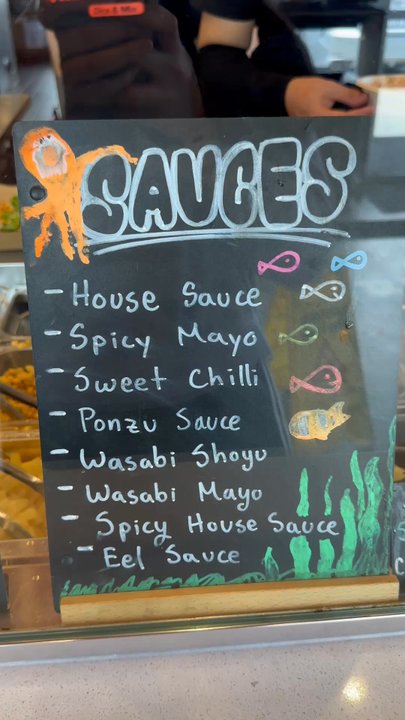 SAUCES
- House Sauce
- Spicy Mayo
- Sweet Chilli
- Ponzu Sauce
- Wasabi Shoyu
- Wasabi Mayo
- Spicy House Sauce
- Eel Sauce